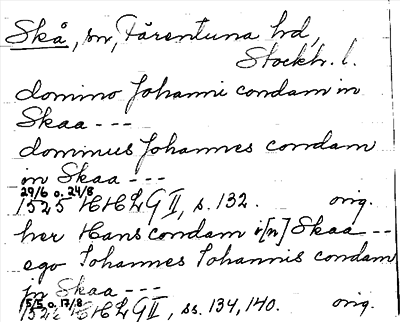 Skå, sn, Färentuna hd,
Stockh. l.
domino Johanni condam in
Skaa ---
dominus Johannes condam
in Skaa ---
29/6 o. 24/8
1525 HHLG II, s. 132. orig.
her Hans condam i[n] Skaa --
ego Johannes Johannis condam
in Skaa ---
5/5 o. 17/8
HHLG II, ss. 134, 140. orig.